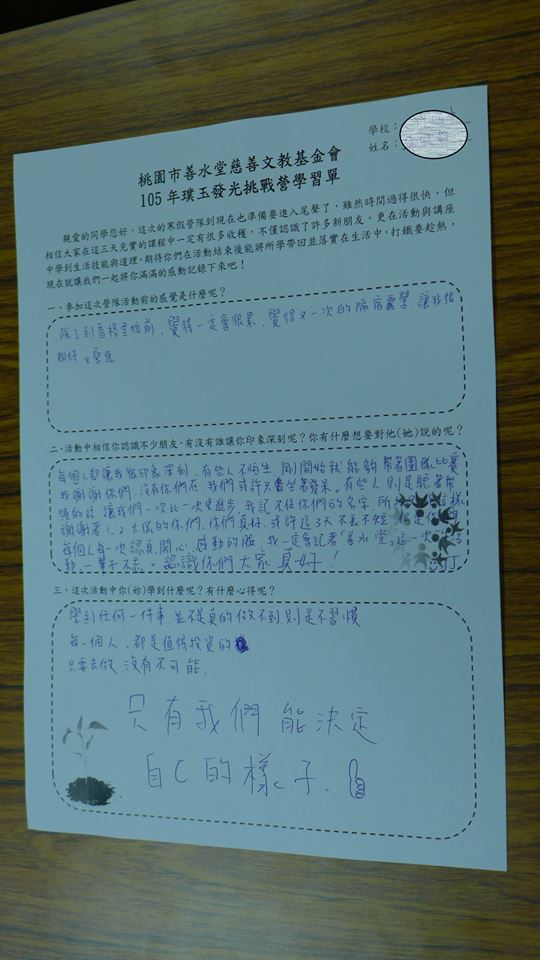 學校：
姓名：
桃園市善水堂慈善文教基金會
105年璞玉發光挑戰營學習單
親愛的同學您好，這次的寒假營隊到現在也準備要進入尾聲了，雖然時間過得很快，但
相信大家在這三天充實的課程中一定有很多收穫，不僅認識了許多新朋友，更在活動與講座
中學到生活技能與道理，期待你們在活動結束後能將所學帶回並落實在生活中，打鐵要趁熱，
現在就讓我們一起將你滿滿的感動記錄下來吧！
一、參加這次營隊活動前的感覺是什麼呢？
除了到香格里拉前，覺得一定會很累，覺得又一次的隔宿露營，讓我很
期待
二、活動中相信你認識不少朋友，有沒有誰讓你印象深刻呢？你有什麼想要對他(她)說的呢？
每個人都讓我很印象深刻，有些人不怕生，剛開始就能夠帶著團隊比賽
我謝謝你們，沒有你們在，我們或許只會坐著發呆。有些人則是聽著帶
頭的話，讓我們一次比一次更進步，我記不住你們的名字，所
謝謝著1、2大隊的你們，你們真好，或許這3天不長不短，
每個人每一次認真、開心、感動的臉，我一定會記著「善水堂」這一次
動，一輩子不忘。認識你們大家真好！
三、這次活動中你(妳)學到什麼呢？有什麼心得呢？
學到任何一件事，並不是真的做不到，則是不習慣
每一個人，都是值得投資的
只要去做，沒有不可能.
只有我們能決定
自己的樣子.